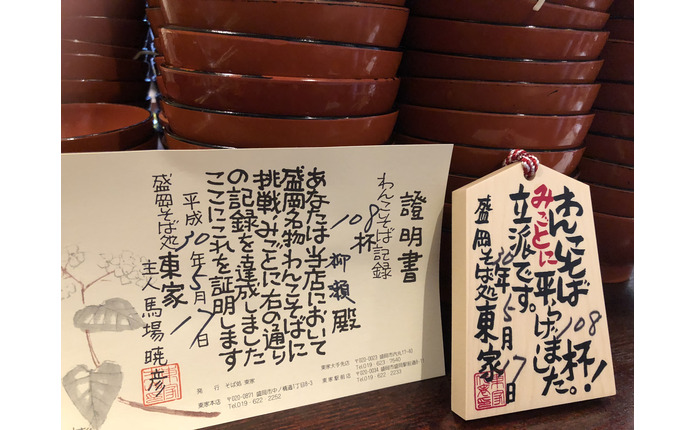 證明書
わんこそば記録
108杯
柳瀬殿
あなたは当店において
盛岡名物わんこそばに
挑戦、みごとに右の通り
の記録を達成しました
ここにこれを証明します
平成30年5月17日
盛岡そば処東家
主人 馬場暁彦
発 行 そば処 東家
東家本店 〒020-0871 盛岡市中ノ橋通1丁目8-3
Tel.019-622-2252
東家大手先店 〒020-0023 盛岡市内丸
Tel.019-623-7640
東家駅前店 〒020-0034 盛岡市盛岡駅前通8-11
Tel.019-622-2233
わんこそば108杯!
みごとに平らげました。
立派です。
30年5月17日
盛岡そば処東家